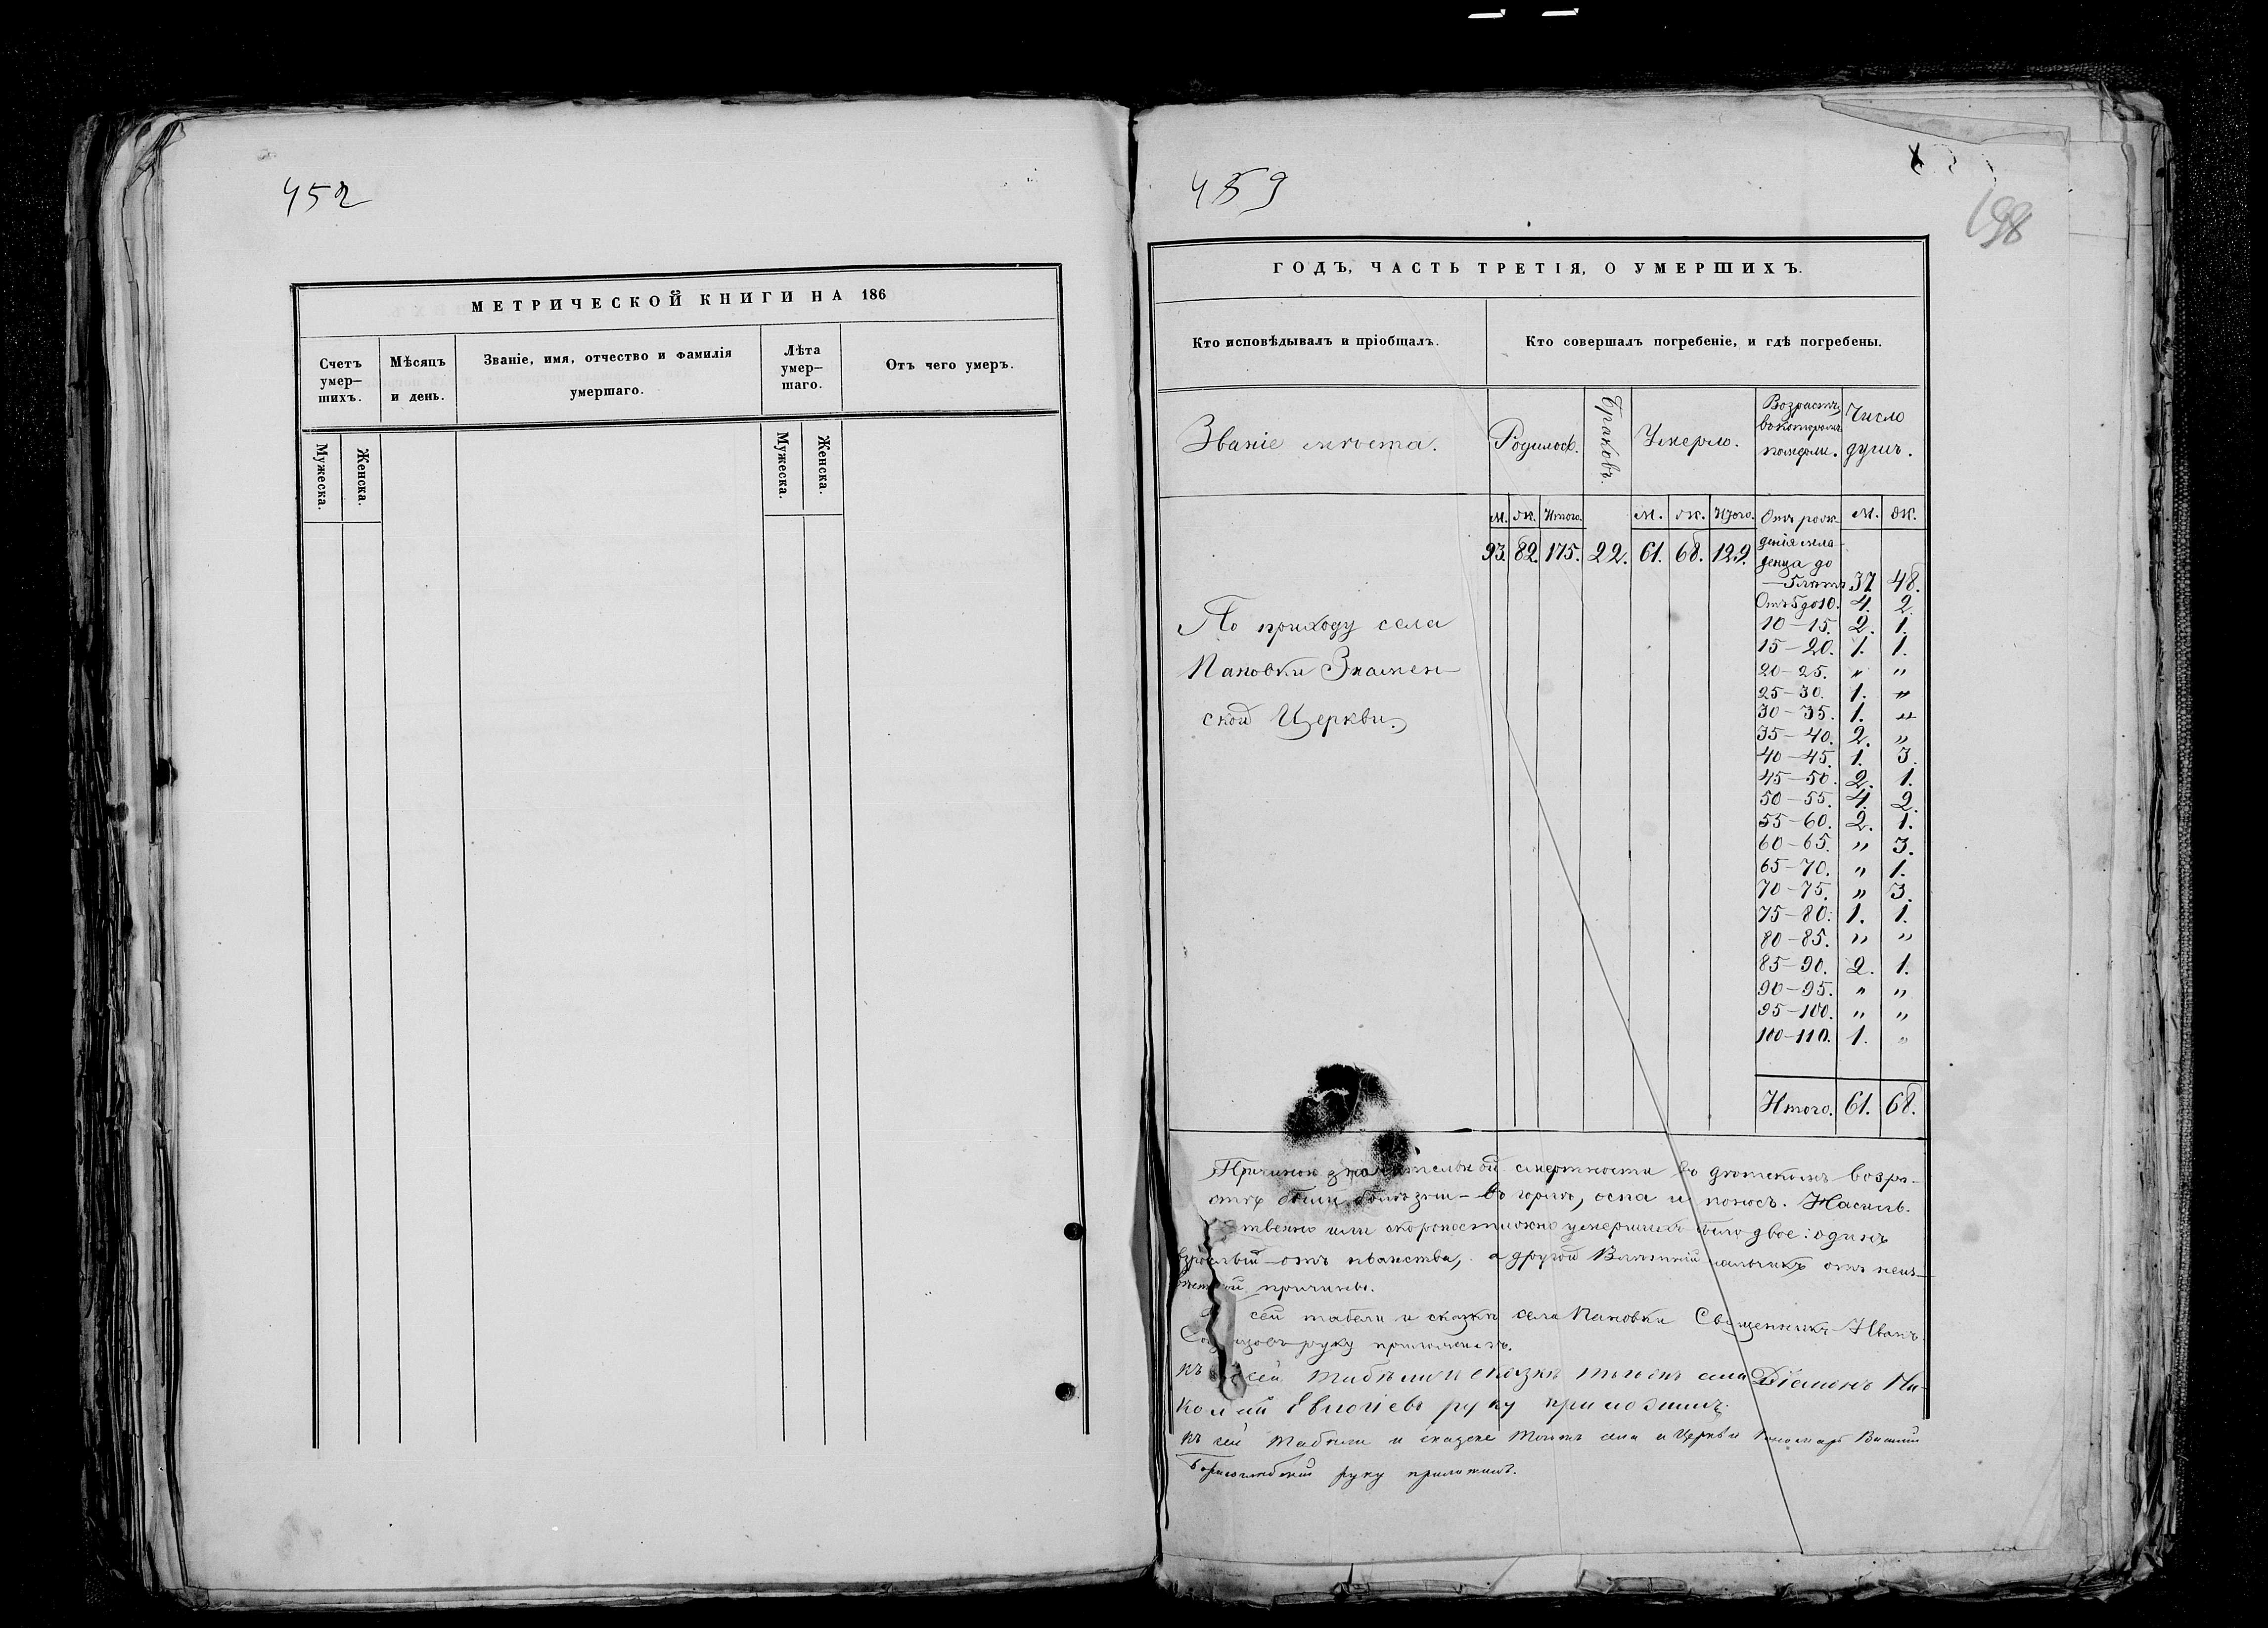 452
МЕТРИЧЕСКОЙ КНИГИ НА 186
Счетъ умер—шихъ.
Мѣсяцъ и день.
Званіе, имя, отчество и фамилія умершаго.
Лѣта умер—шаго.
Отъ чего умеръ.
Мужеска.
Женска.
Мужеска.
Женска.
459
198
ГОДЪ, ЧАСТЬ ТРЕТІЯ, О УМЕРШИХЪ.
Кто исповѣдывалъ и пріобщалъ.
Кто совершалъ погребеніе, и гдѣ погребены.
Званіе мѣста.
Родилось.
Браковъ.
Умерло.
Возрастъ въ которомъ померли.
Число душъ.
м. ж. Итого. м. ж. Итого. Отъ рож- м. ж.
93. 82. 175. 22. 61. 68. 129. денія мла-
денца до
—5 лѣтъ 37. 48.
Отъ 5 до 10. 4. 2.
10—15. 2. 1.
15—20. 1. 1.
20—25. „ „
25—30. 1. „
30—35. 1. „
35—40. 2. „
40—45. 1. 3.
45—50. 2. 1.
50—55. 4. 2.
55—60. 2. 1.
60—65. „ 3.
65—70. „ 1.
70—75. „ 3.
75—80. 1. 1.
80—85. „ „
85—90. 2. 1.
90—95. „ „
95—100. „ „
100—110. 1. „
Итого. 61. 68.
По приходу села
Пановки Знамен—
ской Церкви.
Причиною значительной смертности въ дѣтскомъ возра-
стѣ были болѣзни — въ горлѣ, оспа и поносъ. Насиль-
ственно или скоропостижно умершихъ было двое: одинъ
взрослый — отъ пьянства, а другой мальчикъ отъ неиз—
вѣстной причины.
сей табели и сказкѣ села Пановки Священникъ Иванъ
руку приложилъ.
Къ сей табѣли и сказкѣ тогожъ села Діаконъ Ни-
колай Евлогіевъ руку приложилъ.
Къ сей табели и сказке тогожъ села и Церкви Пономарь Василій
Борисоглебскій руку приложилъ.